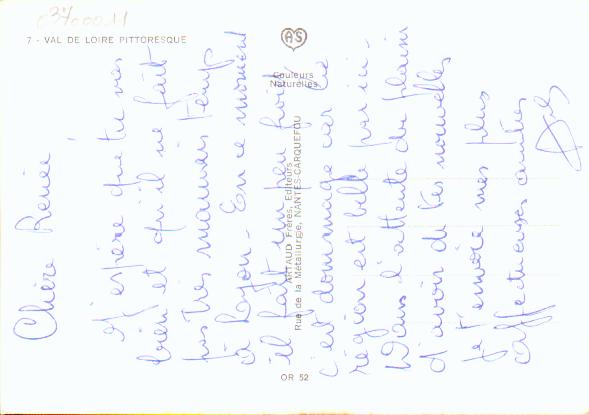 03700011
7 - VAL DE LOIRE PITTORESQUE
A S
Couleurs
Naturelles
ARTAUD Frères, Editeurs
Rue de la Métallurgie, NANTES-CARQUEFOU
OR 52
Chère Renée
J'espère que tu vas
bien et qu'il ne fait
pas très mauvais temps
à Lyon - En ce moment
il fait un peu froid
c'est dommage car la
région est belle par ici -
Dans l'attente du plaisir
d'avoir de tes nouvelles
je t'envoie mes plus
affectueuses amitiés